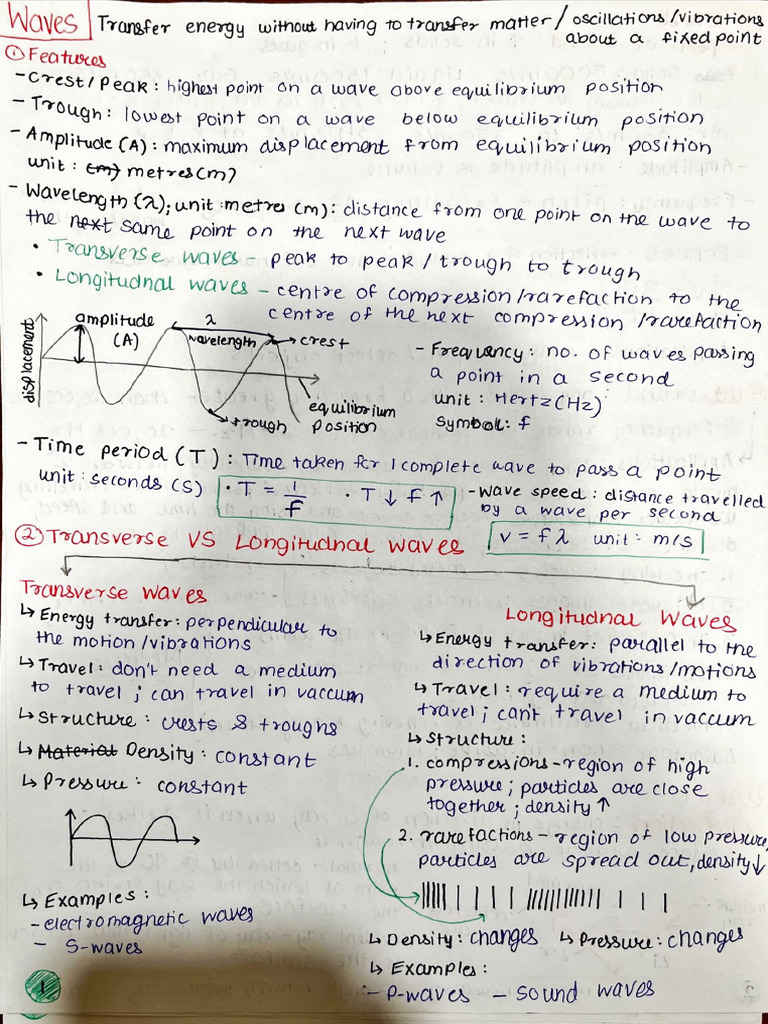 Waves Transfer energy without having to transfer matter/ oscillations/vibrations
about a fixed point
① Features
- Crest/Peak: highest point on a wave above equilibrium position
- Trough: lowest point on a wave below equilibrium position
- Amplitude (A): maximum displacement from equilibrium position
unit: (m) metres(m)
- Wavelength (λ); unit: metres (m): distance from one point on the wave to
the next same point on the next wave
• Transverse waves - peak to peak / trough to trough
• Longitudnal waves - centre of compression/rarefaction to the
centre of the next compression /rarefaction
displacement
amplitude
(A)
λ
wavelength
crest
trough
equilibrium
position
- Frequency: no. of waves passing
a point in a second
unit: Hertz(Hz)
Symbol: f
- Time period (T): Time taken for 1 complete wave to pass a point
unit: seconds (s)
• T = 1/f • T ↓ f ↑
- Wave speed: distance travelled
by a wave per second
v = fλ unit: m/s
② Transverse VS Longitudnal waves
Transverse waves
↳ Energy transfer: perpendicular to
the motion/vibrations
↳ Travel: don't need a medium
to travel; can travel in vaccum
↳ Structure: crests & troughs
↳ Material Density: constant
↳ Pressure: constant
↳ Examples:
- electromagnetic waves
- S-waves
Longitudnal Waves
↳ Energy transfer: parallel to the
direction of vibrations/motions
↳ Travel: require a medium to
travel; can't travel in vaccum
↳ Structure:
1. compressions - region of high
pressure; particles are close
together; density ↑
2. rarefactions - region of low pressure,
particles are spread out, density ↓
↳ Density: changes ↳ Pressure: changes
↳ Examples:
- P-waves - sound waves
1